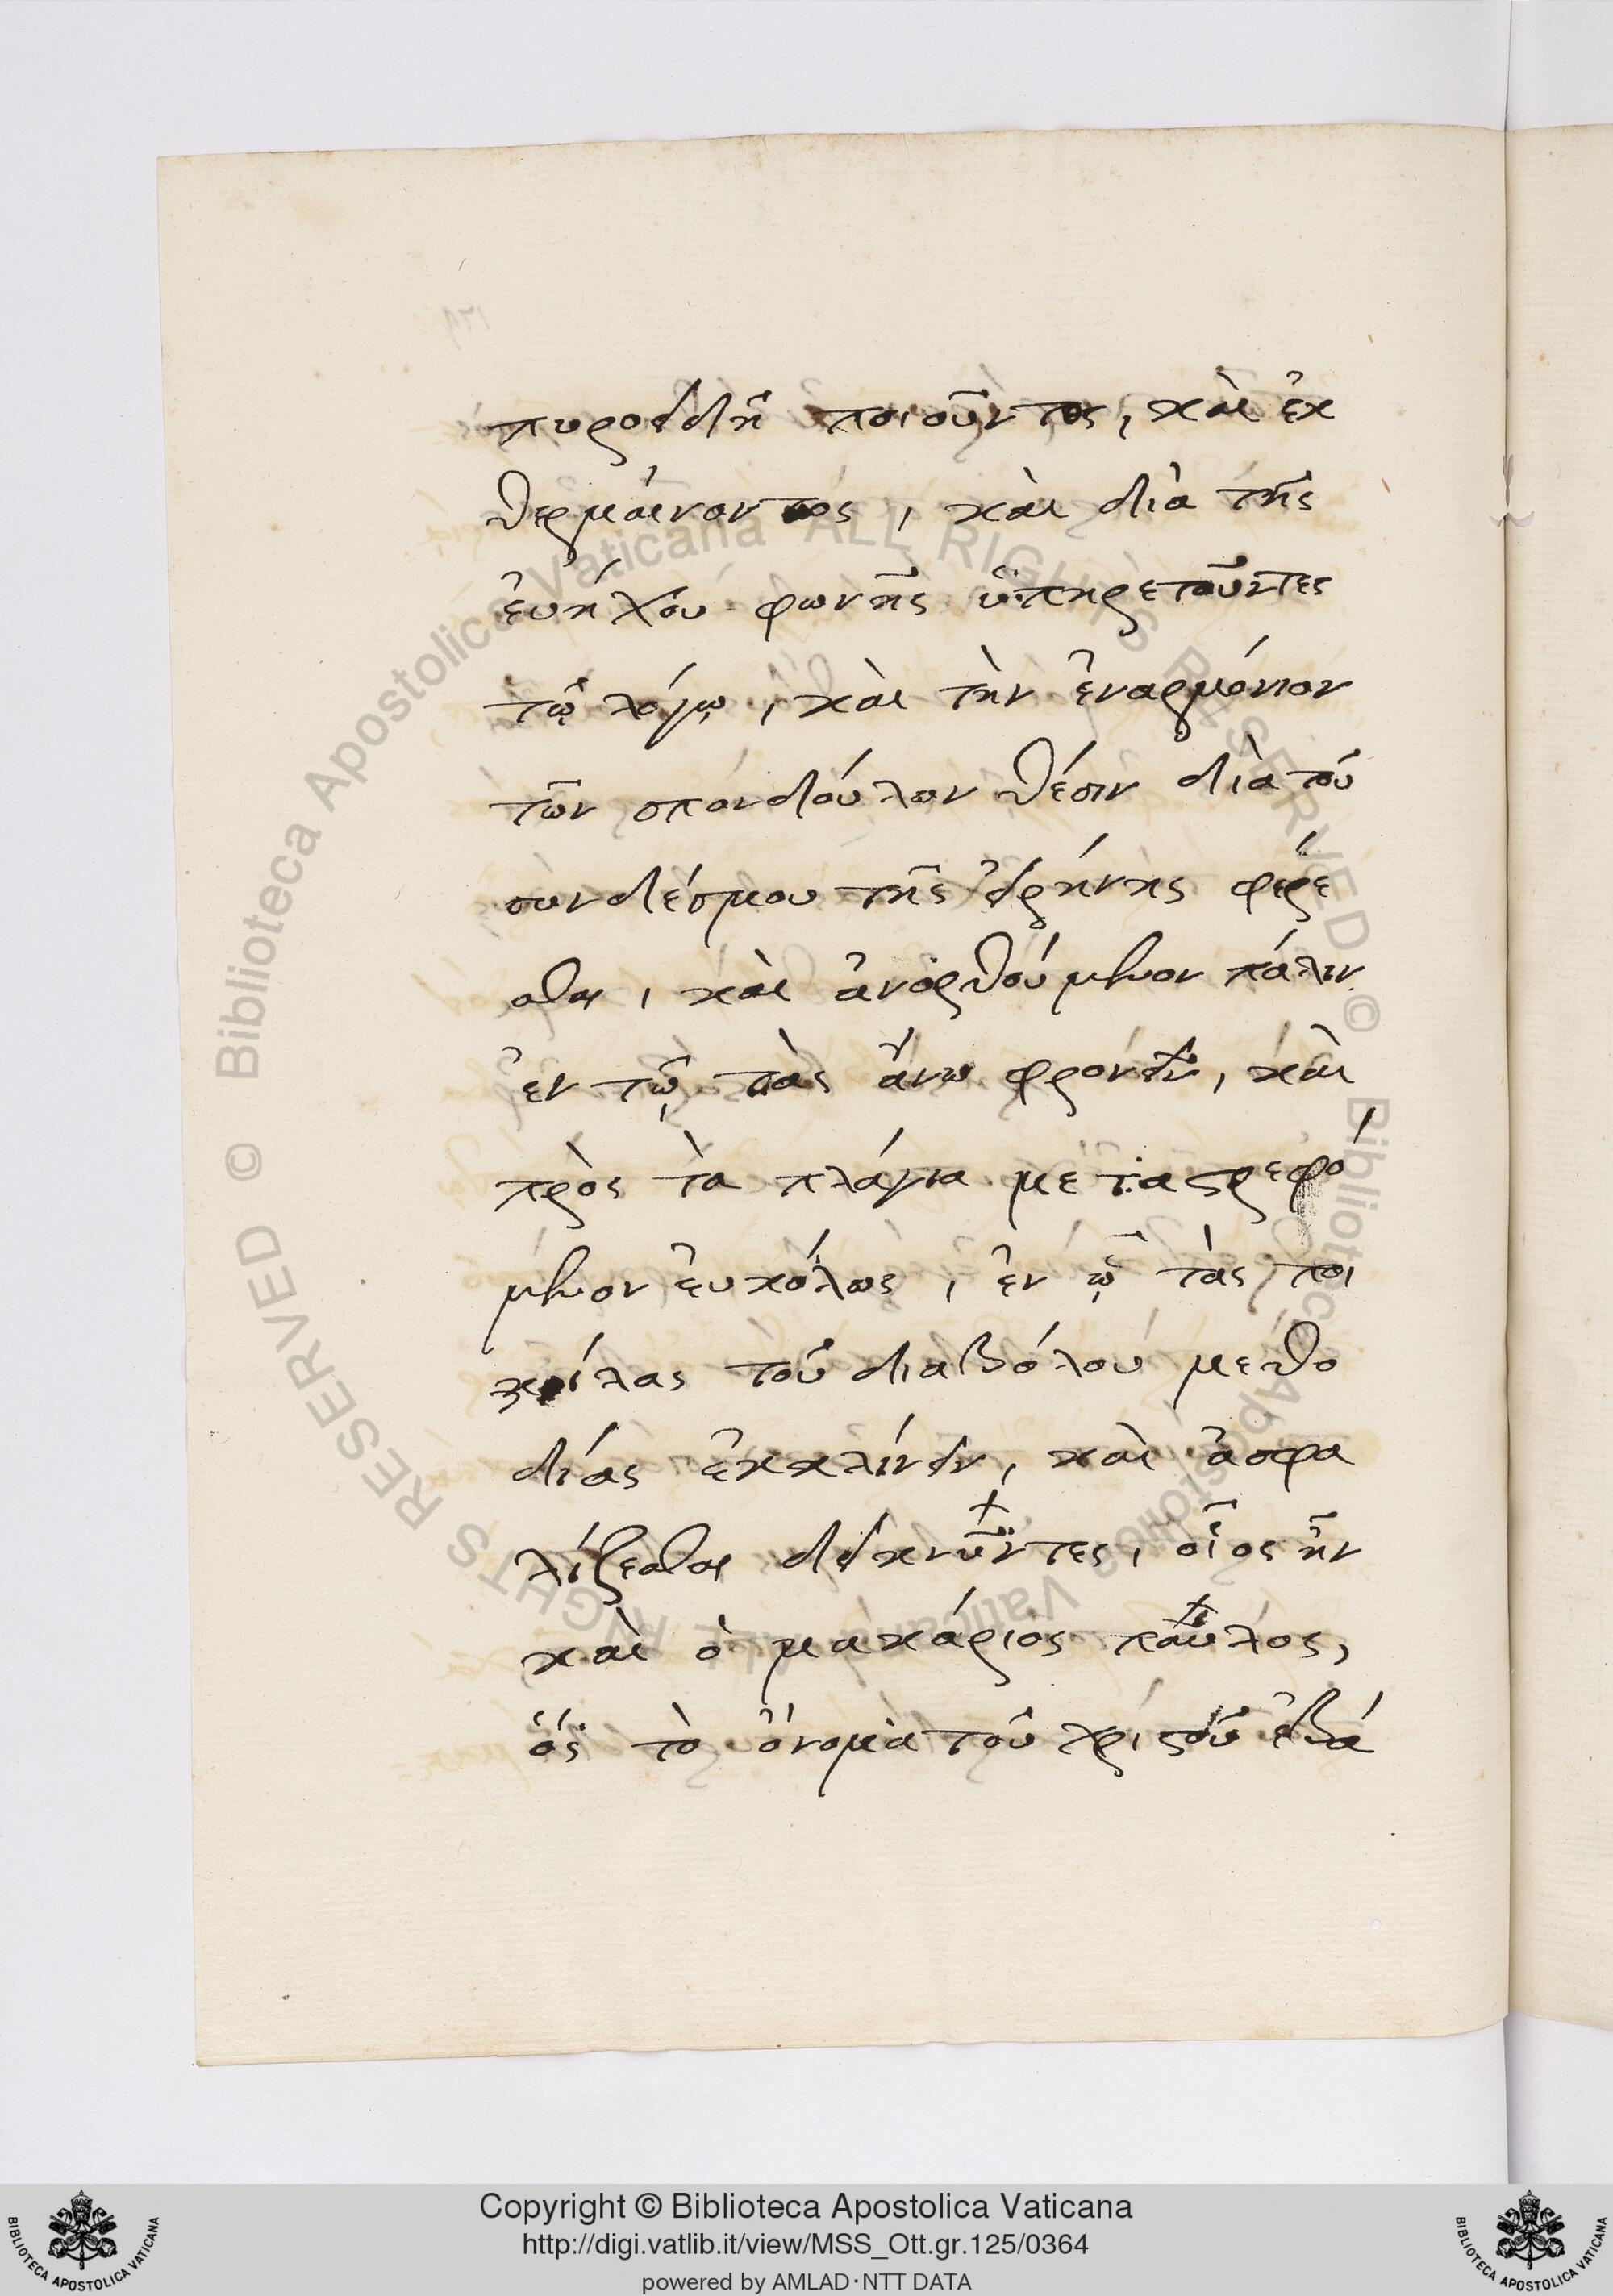 πυροειδῆ ποιοῦντος, καὶ ἐκ
θερμαίνοντος, καὶ διὰ τῆς
ἐυήχου φωνῆς ὑπηρετοῦντες
τῷ λόγῳ, καὶ τὴν ἐναρμόνιον
τῶν σπονδύλων θέσιν διὰ τοῦ
συνδέσμου τῆς εἰρήνης φέρε
σθαι, καὶ ἀνορθούμενον πάλιν
ἐν τῷ τὰς ἄνω φρονεῖν, καὶ
πρὸς τὰ πλάγια μεταστρεφό
μενον ἐυκόλως, ἐν ᾧ τὰς ποι
κίλας τοῦ διαβόλου μεθο
δίας ἐκκλίνειν, καὶ ἀσφα
λίζεσθαι δεικνῦντες, οἷος ἦν
καὶ ὁ μακάριος παῦλος,
ὅς τὸ ὄνομα τοῦ χριστοῦ ἐβά
Copyright © Biblioteca Apostolica Vaticana
http://digi.vatlib.it/view/MSS_Ott.gr.125/0364
powered by AMLAD·NTT DATA
BIBLIOTECA APOSTOLICA VATICANA
BIBLIOTECA APOSTOLICA VATICANA
© Biblioteca Apostolica Vaticana ALL RIGHTS RESERVED © Biblioteca Apostolica Vaticana ALL RIGHTS RESERVED